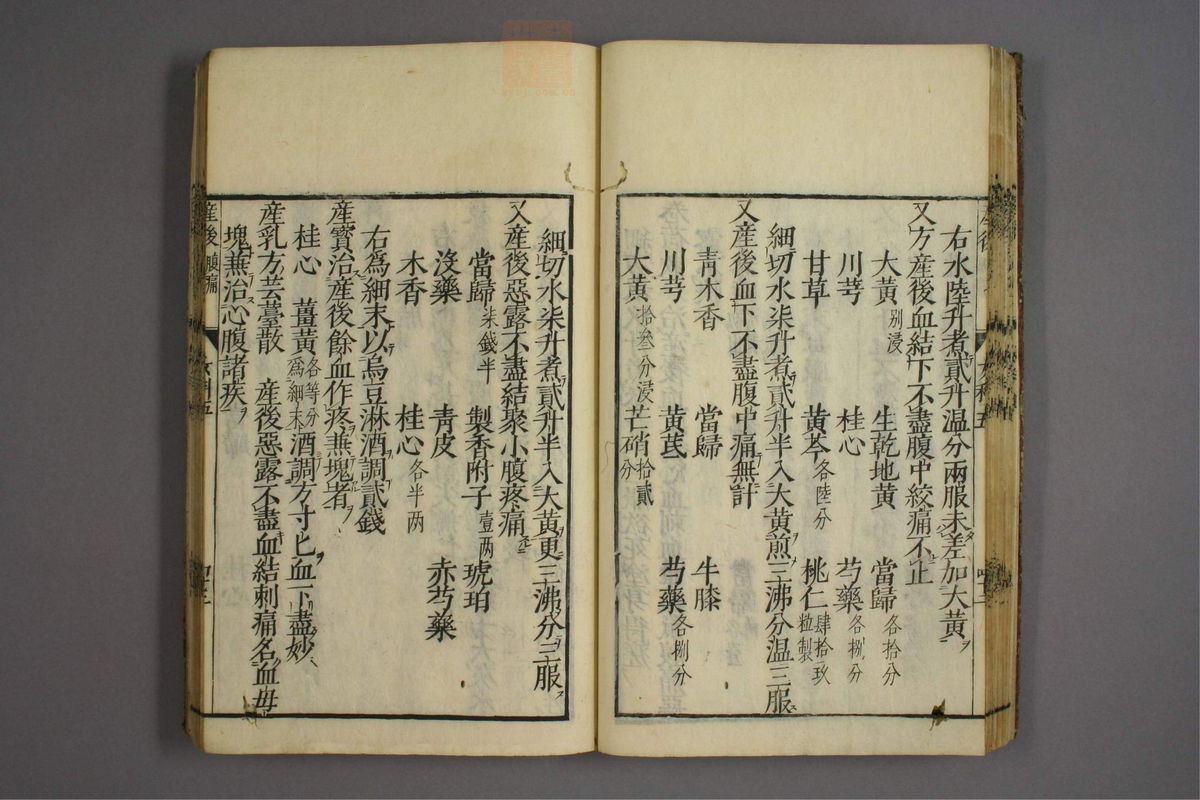 右水陸升煮貳升温分兩服未差加大黄
又方産後血結下不盡腹中絞痛不止
大黄别浸 生乾地黄 當歸各拾分
川芎 桂心 芍藥各捌分
甘草 黄芩各陸分 桃仁肆拾玖粒製
細切水柒升煮貳升半入大黄煎三沸分温三服
又産後血下不盡腹中痛無計
青木香 當歸 牛膝
川芎 黄芪 芍藥各捌分
大黄拾叄分浸 芒硝拾貳分
細切水柒升煮貳升半入大黄更三沸分三服
又産後惡露不盡結聚小腹疼痛
當歸柒錢半 製香附子壹两 琥珀
没藥 青皮 赤芍藥
木香 桂心各半两
右為細末以烏豆淋酒調貳錢
産寳治産後餘血作疼兼塊者
桂心 薑黄各等分爲細末酒調方寸匕血下盡妙
産乳方芸薹散 産後惡露不盡血結刺痛名血母
塊兼治心腹諸疾
産後腹痛